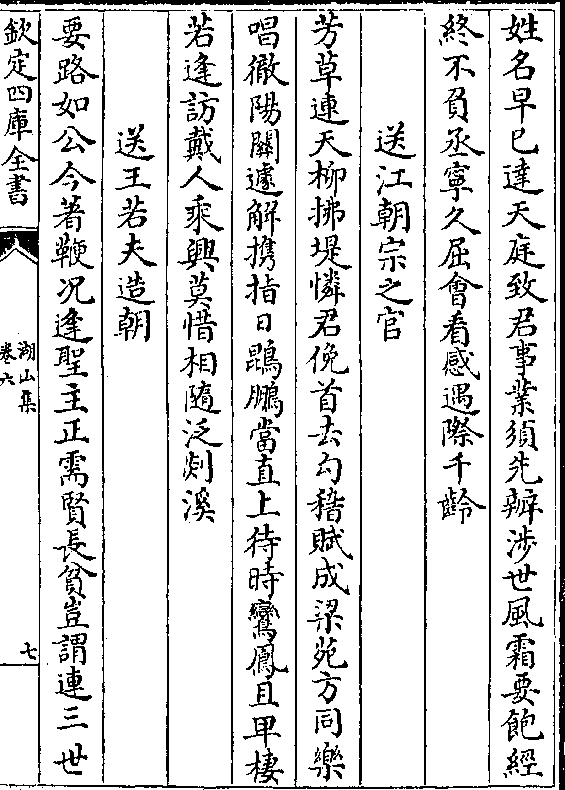 姓名早已達天庭致君事業須先辨涉世風霜要飽經
終不負丞寧久屈會看感遇際千齡
送江朝宗之官
芳草連天柳拂堤憐君俛首去勾稽賦成梁苑方同樂
唱徹陽關遽解携指日鵾鵬當直上待時鸞鳳且卑棲
若逢訪戴人乘興莫惜相隨泛剡溪
送王若夫造朝
要路如公今著鞭况逢聖主正需賢長貧豈謂連三世
欽定四庫全書
湖山集
卷六
七